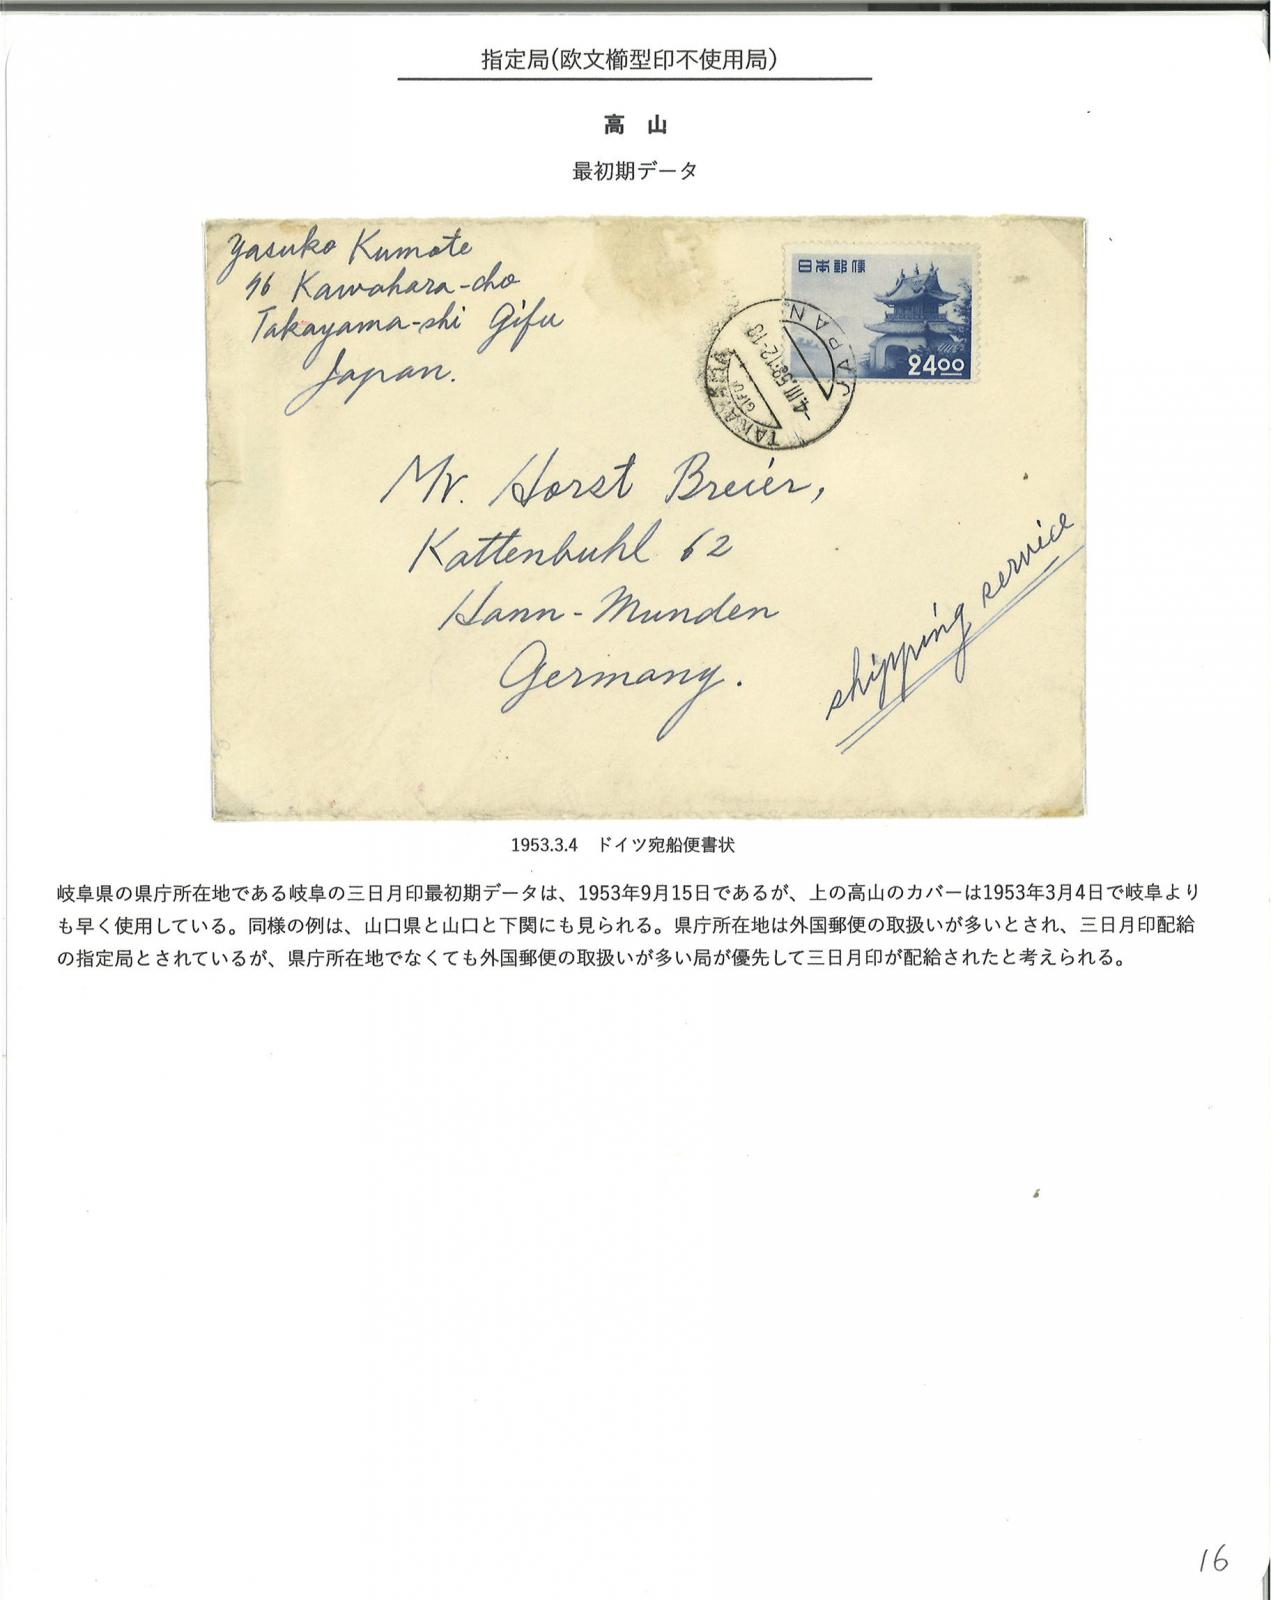 指定局(欧文櫛型印不使用局)
高 山
最初期データ
Yasuko Kumote
46 Kawahara-cho
Takayama-shi Gifu
Japan.
日本郵便
2400
JAPAN
-4.III.53.12-18
TAKAYAMA
GIFU
Mr. Horst Breier,
Kattenbuhl 62
Hann-Munden
Germany.
shipping service
1953.3.4 ドイツ宛船便書状
岐阜県の県庁所在地である岐阜の三日月印最初期データは、1953年9月15日であるが、上の高山のカバーは1953年3月4日で岐阜より
も早く使用している。同様の例は、山口県と山口と下関にも見られる。県庁所在地は外国郵便の取扱いが多いとされ、三日月印配給
の指定局とされているが、県庁所在地でなくても外国郵便の取扱いが多い局が優先して三日月印が配給されたと考えられる。
16